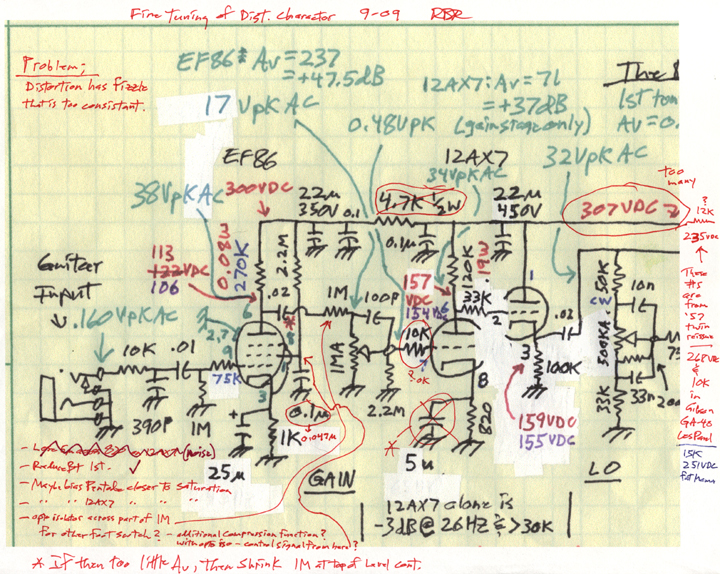 Fine Tuning of Dist. Character 9-09 RBR
Problem;
Distortion has fizzle
that is too consistant.
EF86: Av = 237
= +47.5dB
17 VpK AC
12AX7: Av = 71
= +37dB
(gain stage only)
0.48VpK
The
1st ton
Av=0.
EF86
12AX7
34VpK AC
32VpK AC
38VpK AC
300VDC
22µ
350V
0.1
4.7K 1/2W
0.1µ
22µ
450V
too
many
307VDC
?
12K
235VDC
These
#s
are
from
'57
twin
reissue
268VDC
&
10K
in
Gibson
GA-40
Les Paul
15K
251VDC
113
122VDC
106
0.08W
270K
2.2M
.02
1M
100P
157
VDC
154VDC
120K
.19W
33K
1
2
3
.02
50K
CW
10n
500KA
33K
33n
Guitar
Input
.160VpK AC
2.7
6
9
8
3
10K
.01
75K
390P
1M
1MA
10K
?
2.2M
8
820
100K
159VDC
155VDC
0.1µ
0.047µ
1K
25µ
5µ
GAIN
LO
12AX7 alone is
-3dB @ 26HZ & >30K
- Reduce Bf 1st. ✓
- Maybe bias Pentode closer to saturation
- " " 12AX7 " " "
- opto isolator across part of 1M
for other foot switch? - additional compression function?
with opto iso - control signal from here?
* If then too little Av, then shrink 1M at top of Level cont.